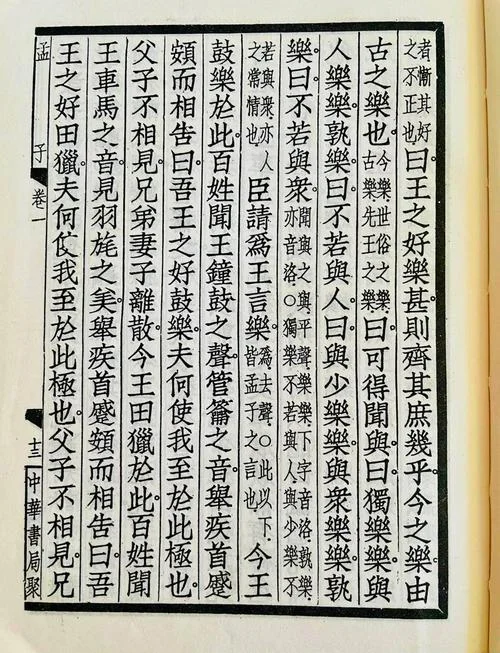 者慚其好
之不正也
曰王之好樂甚則齊其庶幾乎今之樂由
古之樂也
今樂世俗之樂
古樂先王之樂
曰可得聞與曰獨樂樂與
人樂樂孰樂曰不若與人曰與少樂樂與衆樂樂孰
樂曰不若與衆
聞與之與平聲樂樂下字音洛孰樂
亦音洛○獨樂不若與人與少樂不
若與衆亦人
之常情也
臣請爲王言樂
爲去聲○此以下
皆孟子之言也
今王
鼓樂於此百姓聞王鐘鼓之聲管籥之音舉疾首蹙
頞而相告曰吾王之好鼓樂夫何使我至於此極也
父子不相見兄弟妻子離散今王田獵於此百姓聞
王車馬之音見羽旄之美舉疾首蹙頞而相告曰吾
王之好田獵夫何使我至於此極也父子不相見兄
孟子 卷一 十三 中華書局聚